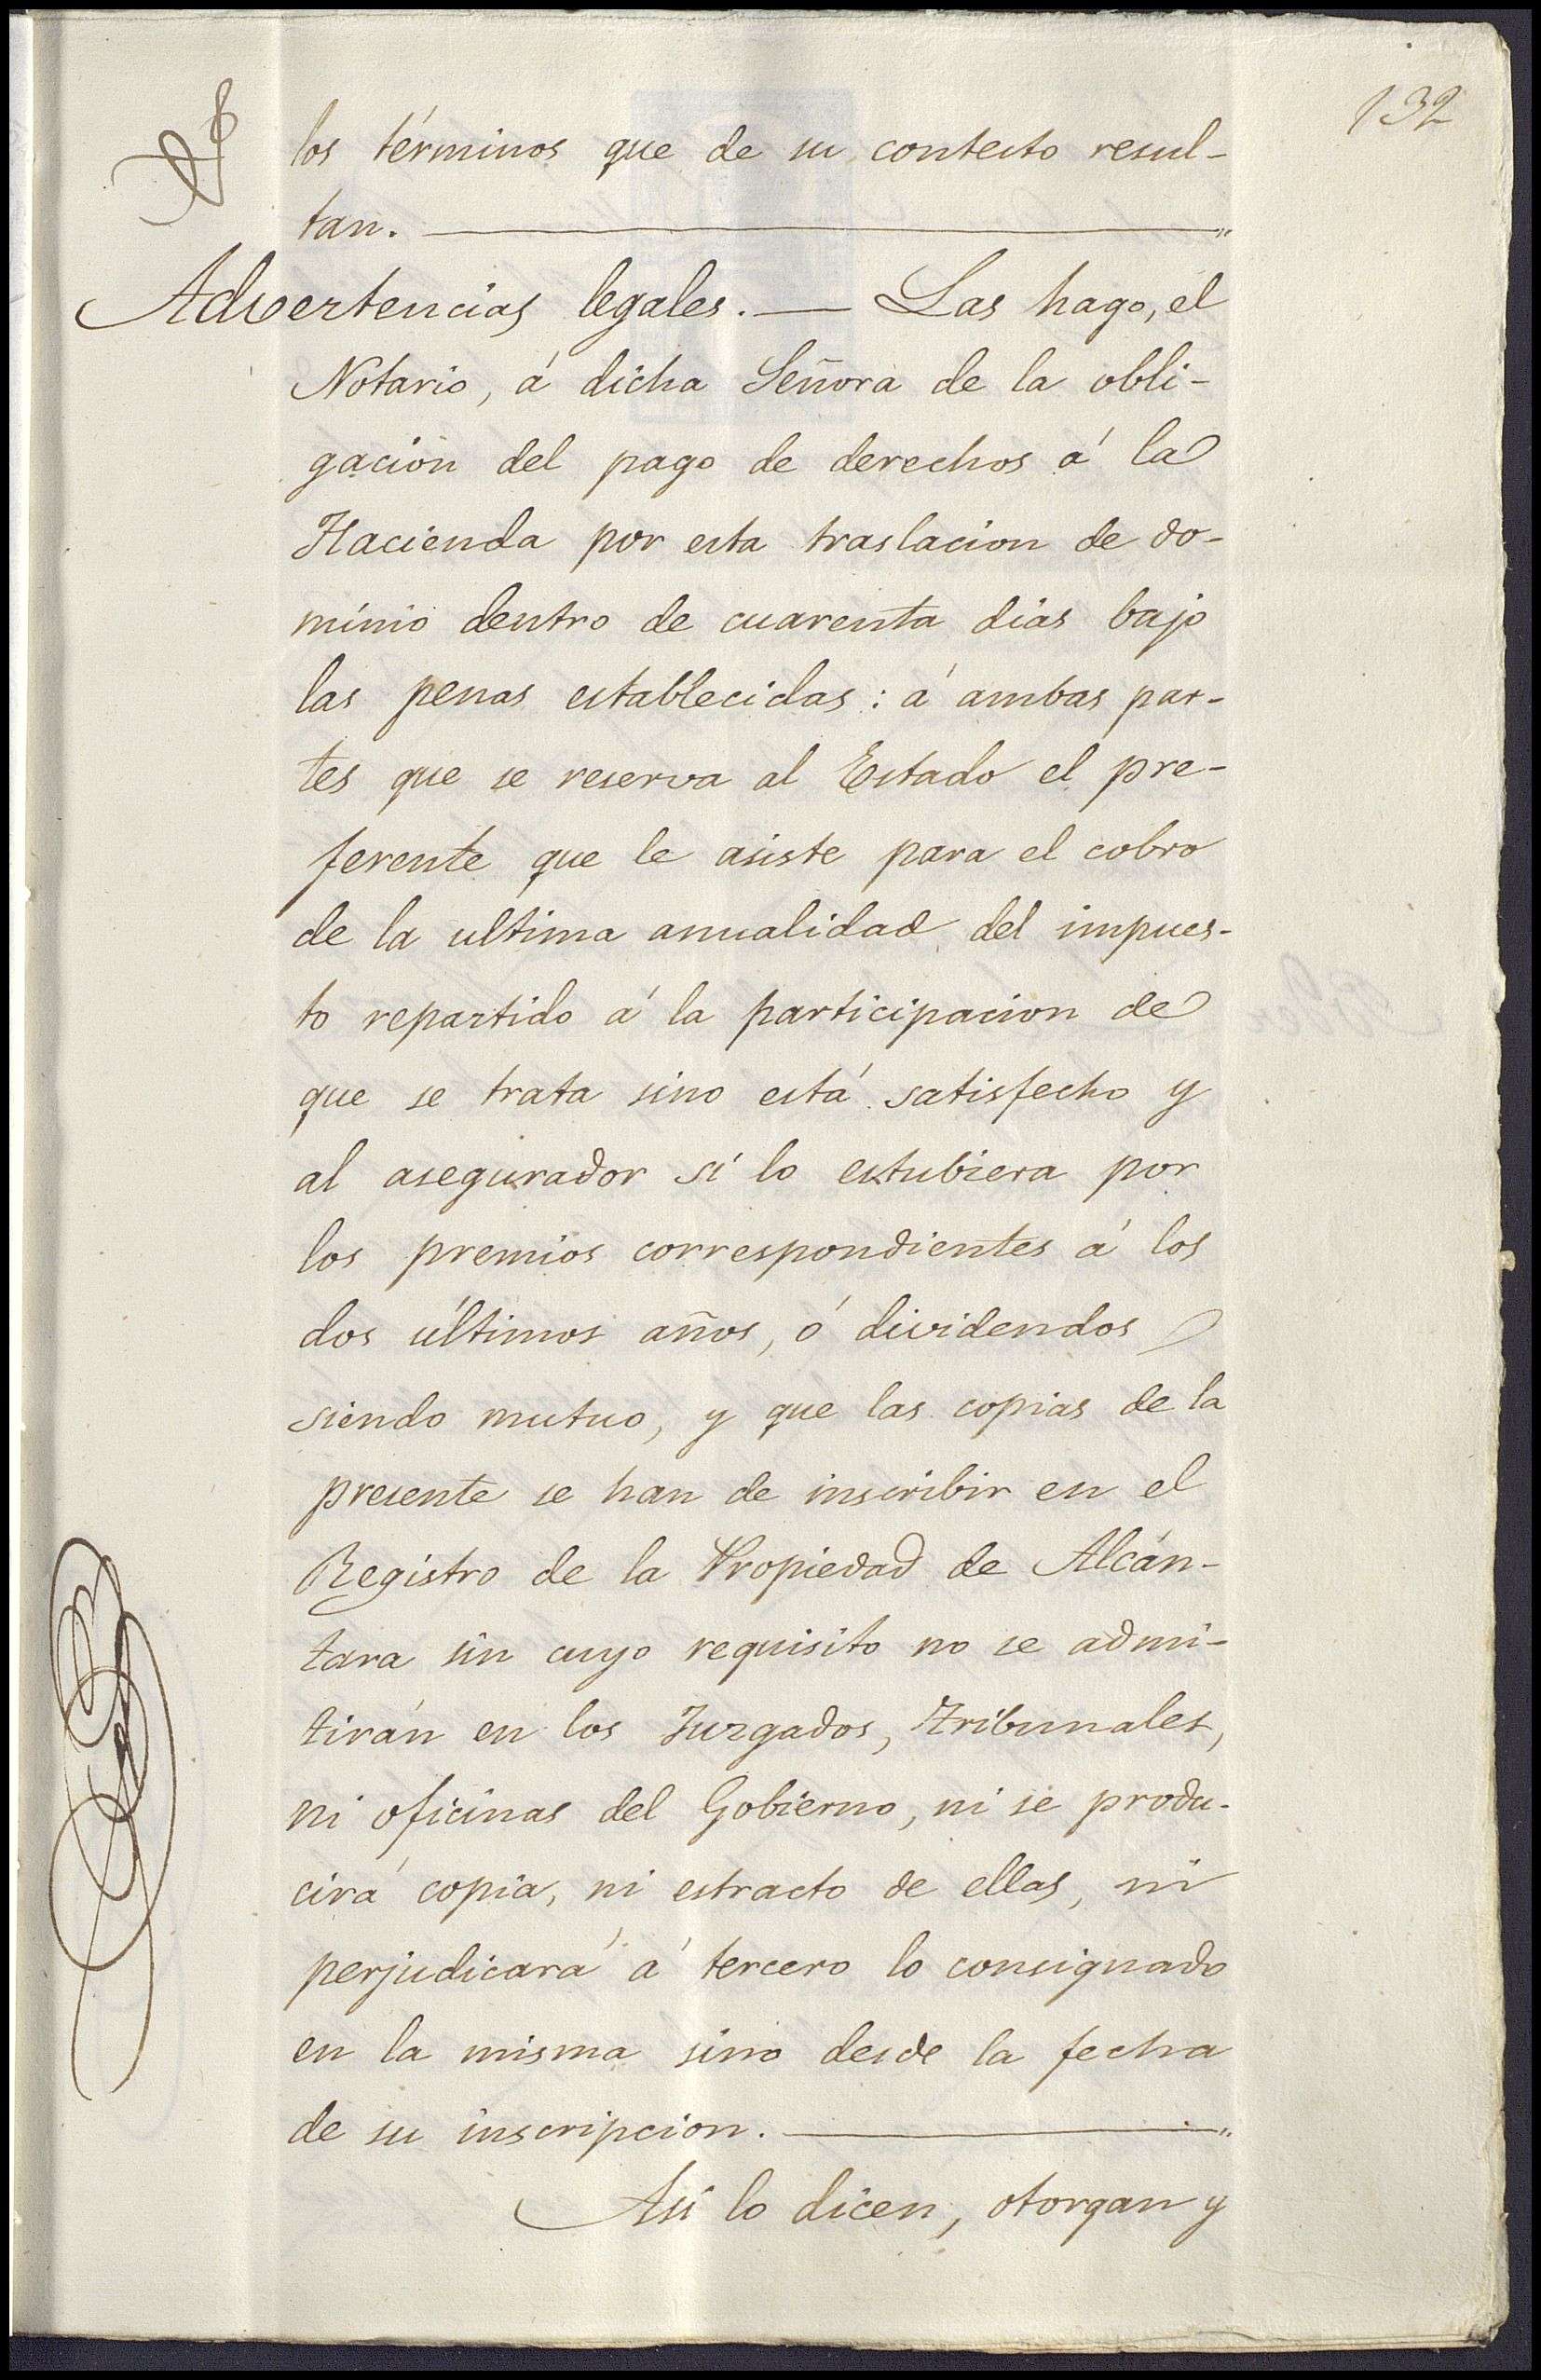 132
los términos que de su contesto resul-
tan. ——— "
Advertencias legales. — Las hago, el
Notario, á dicha Señora de la obli-
gación del pago de derechos á la
Hacienda por esta traslacion de do-
minio dentro de cuarenta dias bajo
las penas establecidas: á ambas par-
tes que se reserva al Estado el pre-
ferente que le asiste para el cobro
de la ultima anualidad del impues-
to repartido á la participacion de
que se trata sino está satisfecho y
al asegurador si lo estubiera por
los premios correspondientes á los
dos últimos años, ó dividendos
siendo mutuo, y que las copias de la
presente se han de inscribir en el
Registro de la Propiedad de Alcán-
tara sin cuyo requisito no se admi-
tirán en los Juzgados, Tribunales,
ni oficinas del Gobierno, ni se produ-
cirá copia, ni estracto de ellas, ni
perjudicará á tercero lo consignado
en la misma sino desde la fecha
de su inscripcion. ——— "
Asi lo dicen, otorgan y